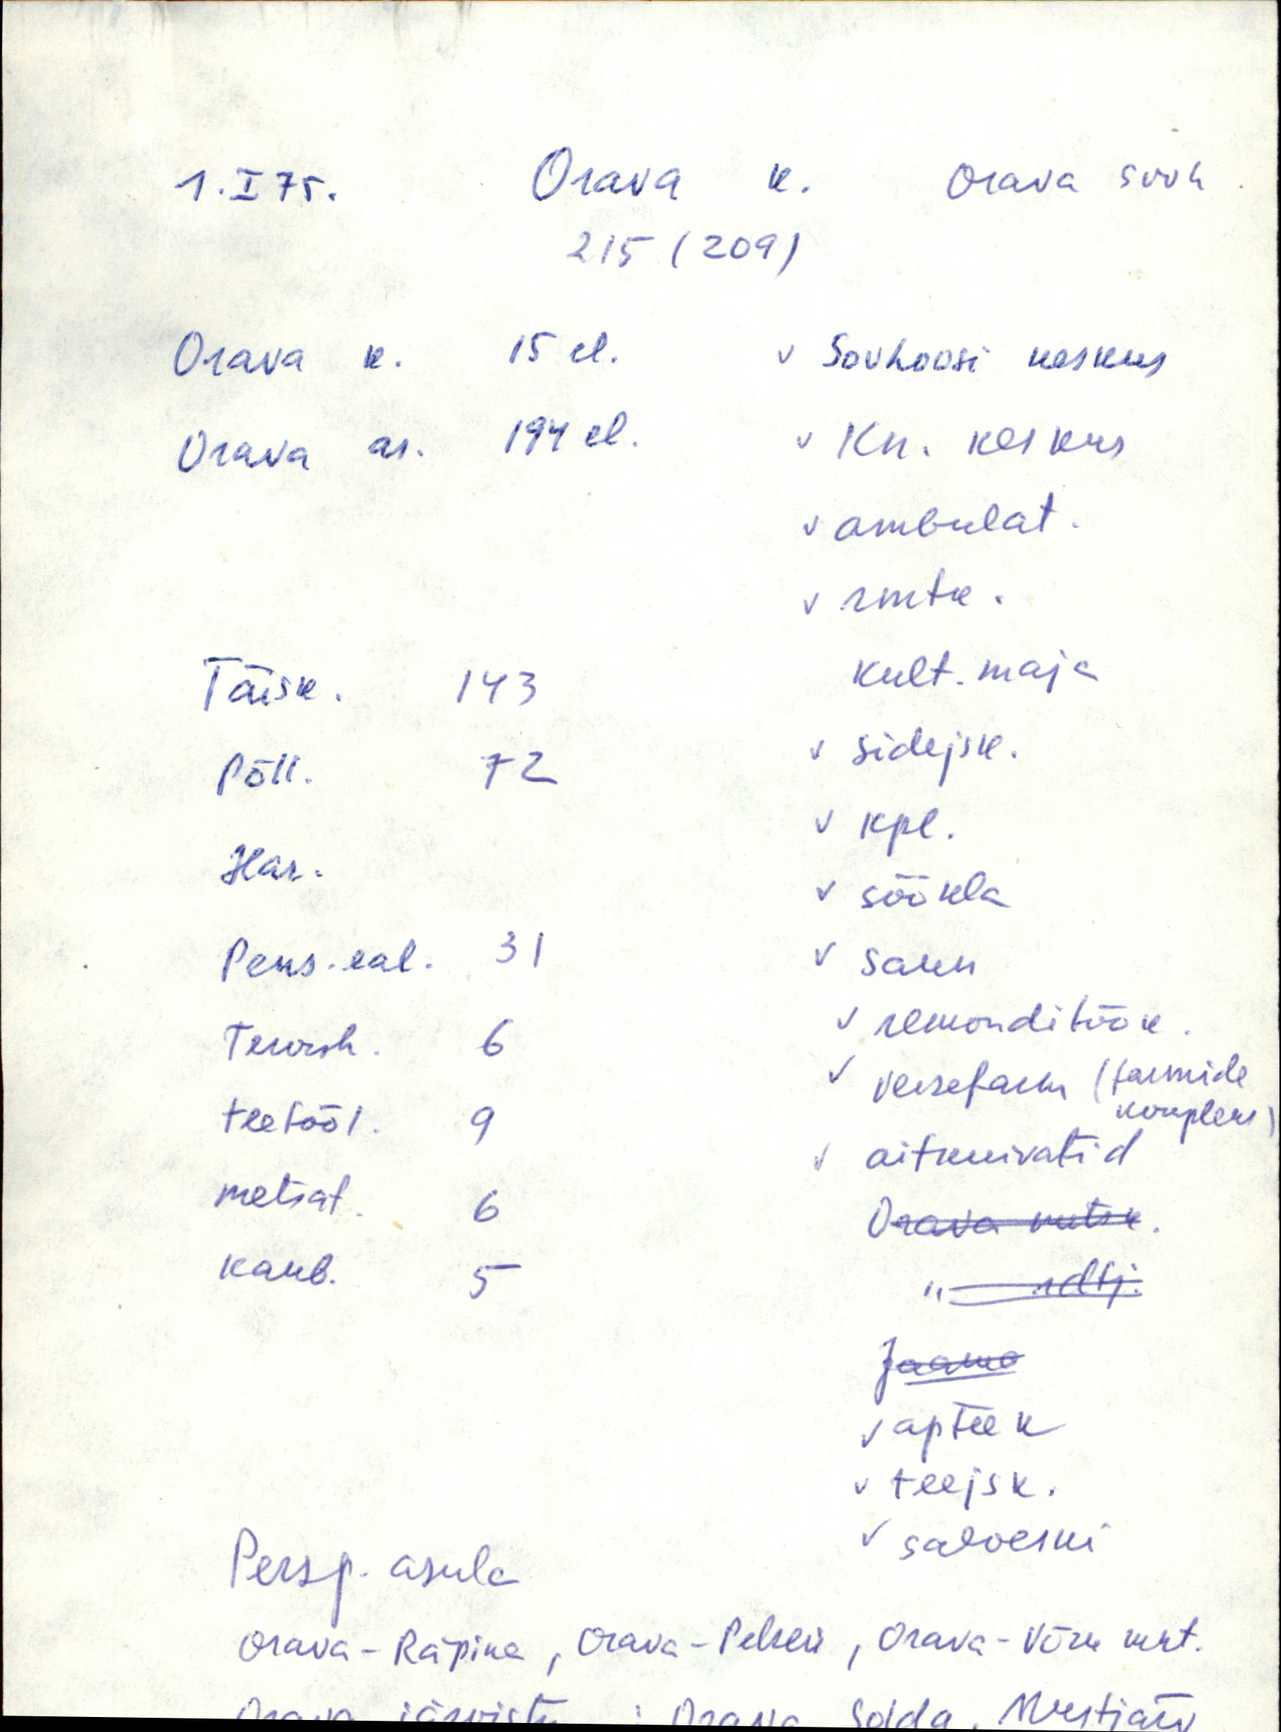 1. I 75. Orava k. Orava sovh.
215 (209)
Orava k. 15 el. v Sovhoosi keskus
Orava as. 194 el. v Kn. keskus
v ambulat.
v rmtk.
Täisk. 143 kult. maja
Põll. 72 v sidejsk.
Har. v kpl.
v söökla
Pens. eal. 31 v saun
Tervish. 6 v remonditöök.
v veisefarm (farmide
kompleks)
teetööl. 9 v aitkuivatid
metsat. 6 Orava
kaub. 5 "
Jaama
v apteek
v teejsk.
v salvesti
Persp. asula
Orava-Räpina, Orava-Petseri, Orava-Võru mnt.
Orava järvistu : Orava, Solda, Mustjärv